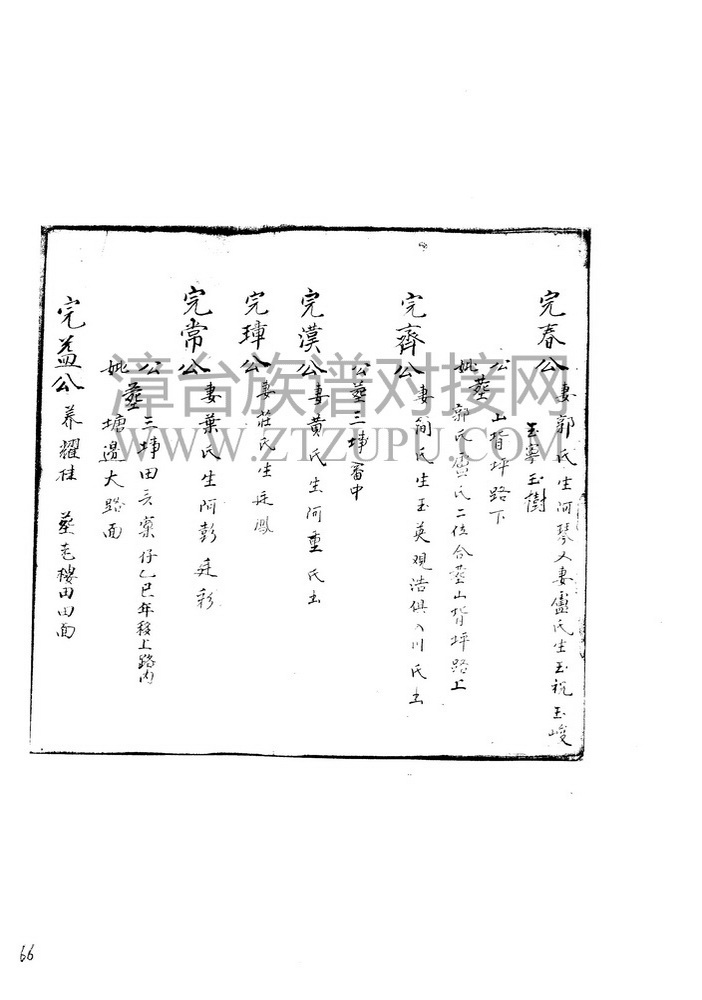 完春公 妻郭氏生阿琴又妻盧氏生玉祝玉峻
玉寧玉樹
公葬山背坪路下
妣 郭氏盧氏二位合葬山背坪路上
完齊公 妻簡氏生玉英观浩俱入川氏
公葬三埔畬中
完漢公 妻黄氏生阿重氏
完璋公 妻莊氏生廷鳳
完常公 妻葉氏生阿彭廷彩
公葬三埔田 窠仔乙巳年移上路内
妣 塘邊大路面
完益公 养耀桂 葬老樓田田面
漳台族谱对接网
WWW.ZTZUPU.COM
66